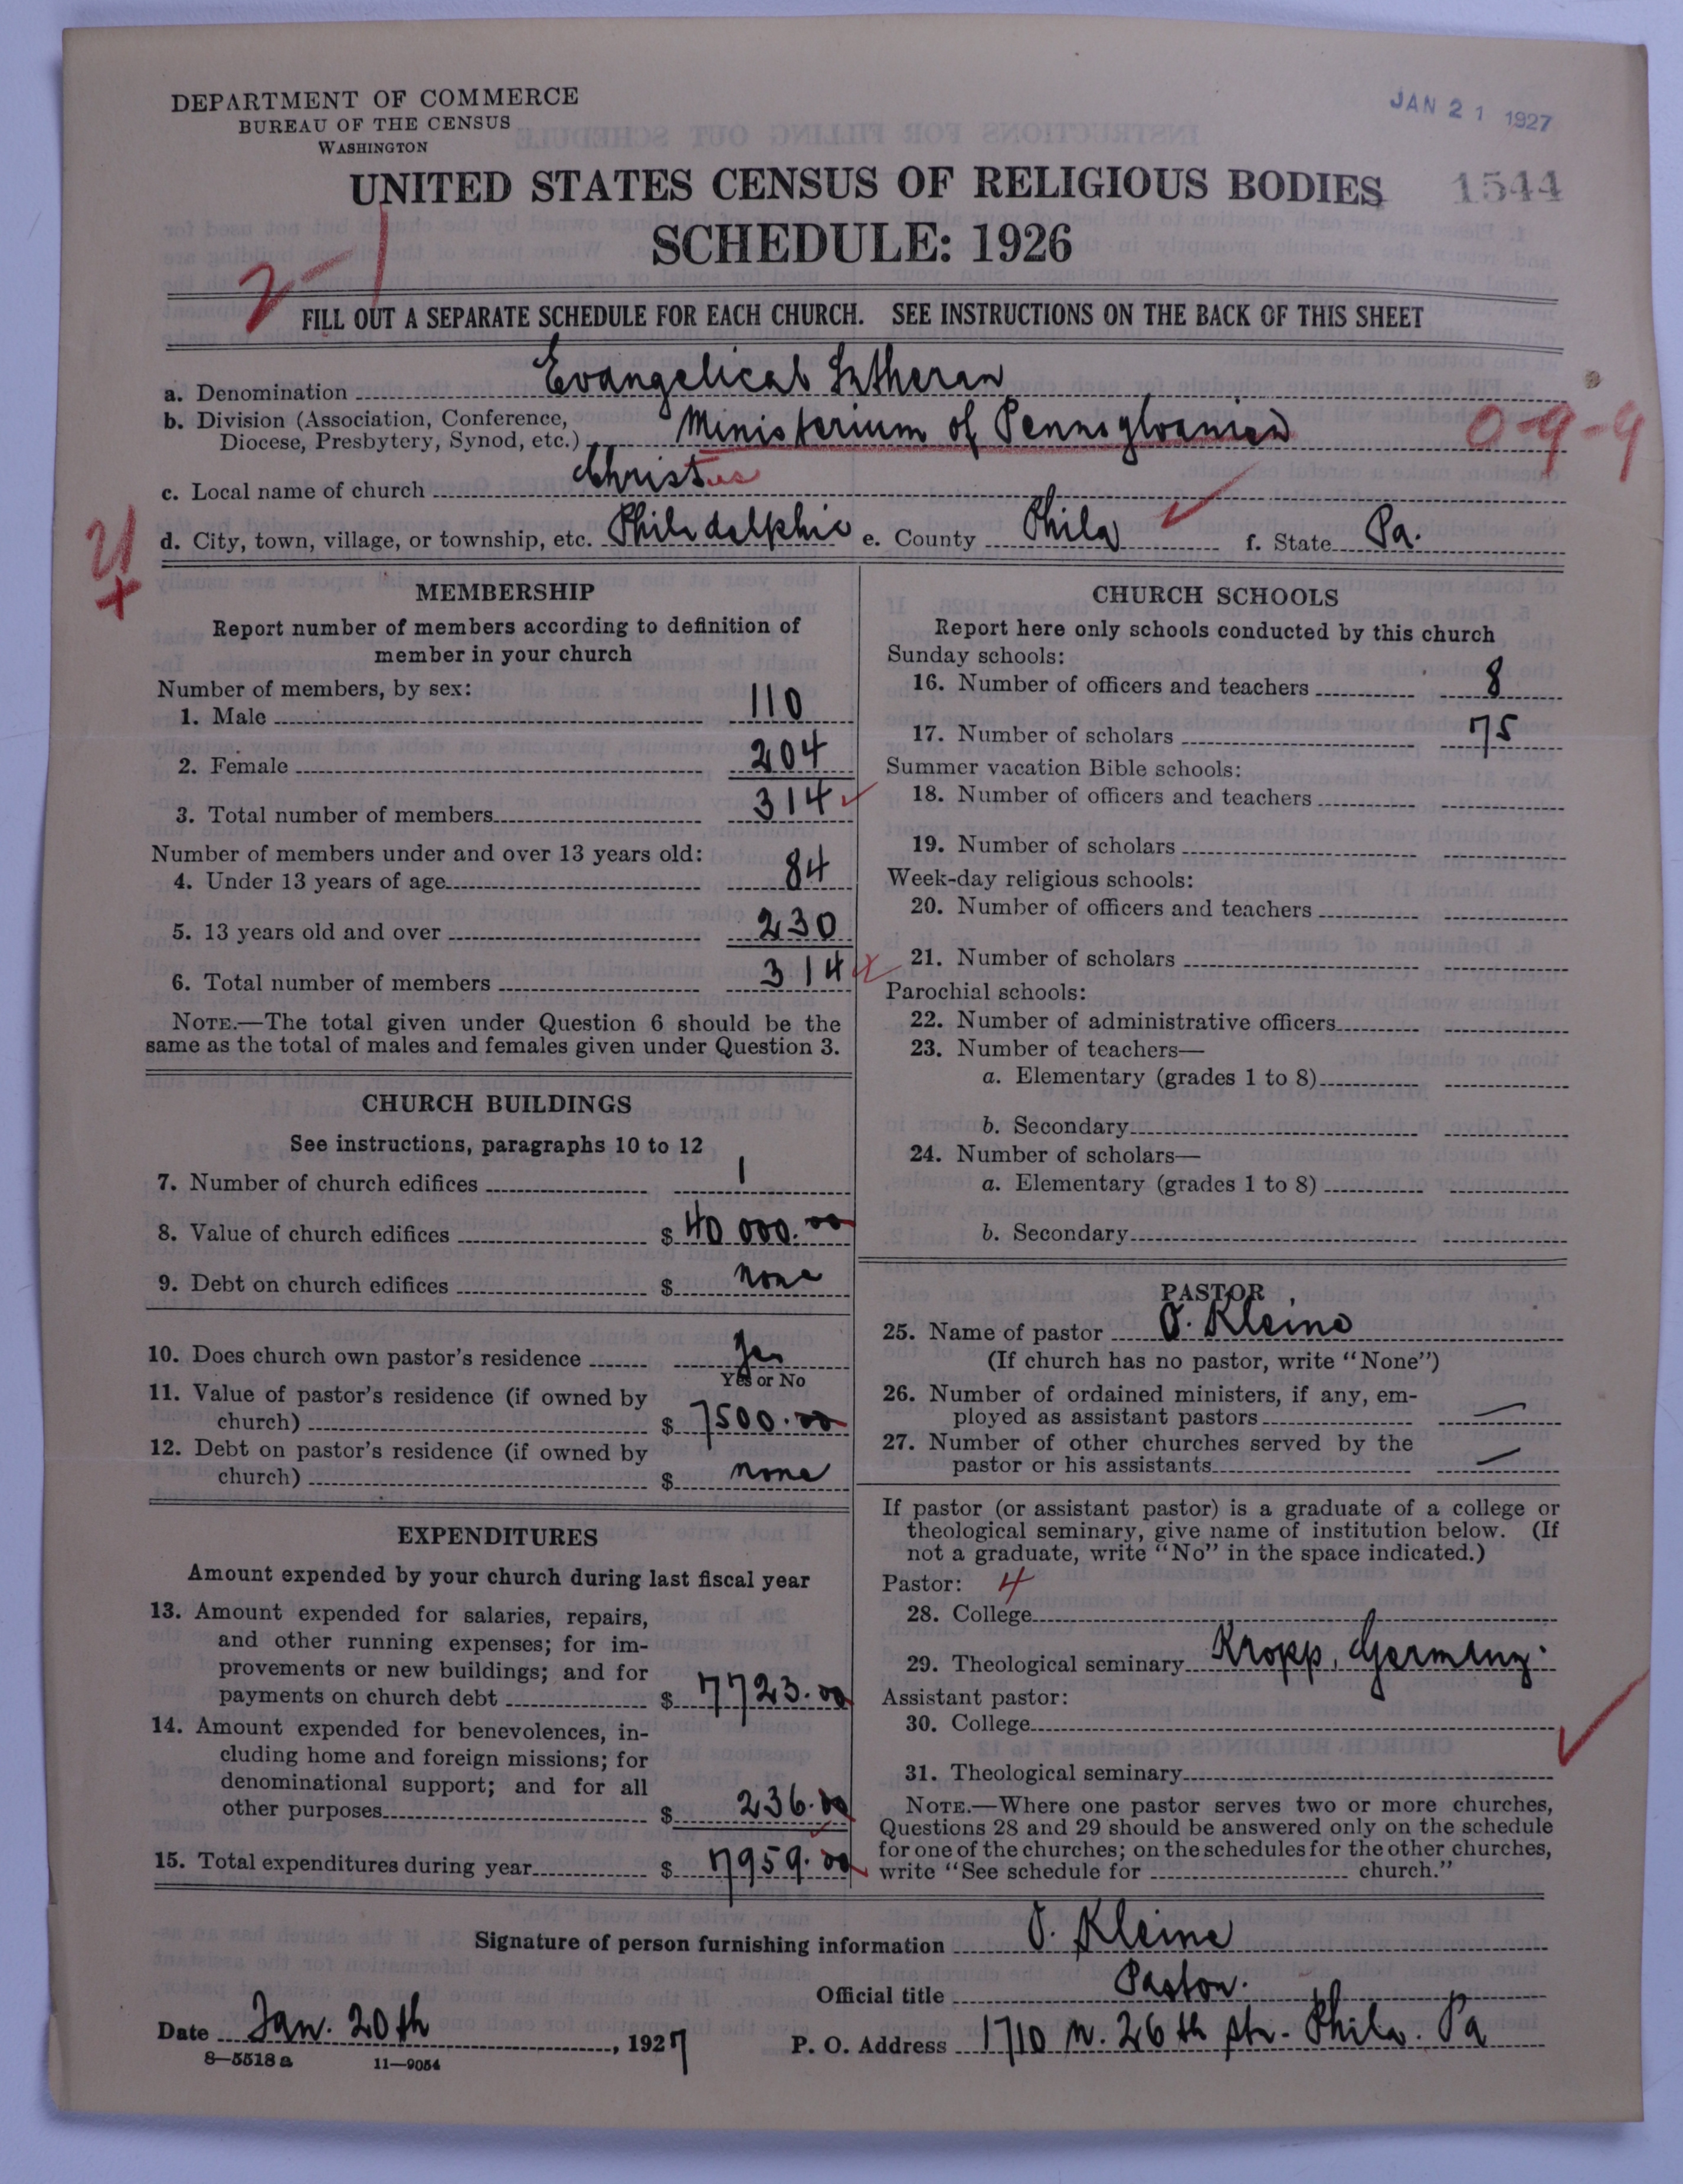 DEPARTMENT OF COMMERCE
BUREAU OF THE CENSUS
WASHINGTON
JAN 21 1927
UNITED STATES CENSUS OF RELIGIOUS BODIES
1544
SCHEDULE: 1926
2-1
FILL OUT A SEPARATE SCHEDULE FOR EACH CHURCH. SEE INSTRUCTIONS ON THE BACK OF THIS SHEET
a. Denomination Evangelical Lutheran
b. Division (Association, Conference,
Diocese, Presbytery, Synod, etc.) Ministerium of Pennsylvania
0-9-9
c. Local name of church Christus
d. City, town, village, or township, etc. Philadelphia e. County Phila f. State Pa.
MEMBERSHIP
Report number of members according to definition of
member in your church
Number of members, by sex:
1. Male 110
2. Female 204
3. Total number of members 314
Number of members under and over 13 years old:
4. Under 13 years of age 84
5. 13 years old and over 230
6. Total number of members 314
NOTE.—The total given under Question 6 should be the
same as the total of males and females given under Question 3.
CHURCH BUILDINGS
See instructions, paragraphs 10 to 12
7. Number of church edifices 1
8. Value of church edifices $ 40 000.00
9. Debt on church edifices $ none
10. Does church own pastor's residence yes
Yes or No
11. Value of pastor's residence (if owned by
church) $ 7500.00
12. Debt on pastor's residence (if owned by
church) $ none
EXPENDITURES
Amount expended by your church during last fiscal year
13. Amount expended for salaries, repairs,
and other running expenses; for im-
provements or new buildings; and for
payments on church debt $ 7723.00
14. Amount expended for benevolences, in-
cluding home and foreign missions; for
denominational support; and for all
other purposes $ 236.00
15. Total expenditures during year $ 7959.00
CHURCH SCHOOLS
Report here only schools conducted by this church
Sunday schools:
16. Number of officers and teachers 8
17. Number of scholars 75
Summer vacation Bible schools:
18. Number of officers and teachers
19. Number of scholars
Week-day religious schools:
20. Number of officers and teachers
21. Number of scholars
Parochial schools:
22. Number of administrative officers
23. Number of teachers—
a. Elementary (grades 1 to 8)
b. Secondary
24. Number of scholars—
a. Elementary (grades 1 to 8)
b. Secondary
PASTOR
25. Name of pastor O. Kleine
(If church has no pastor, write "None")
26. Number of ordained ministers, if any, em-
ployed as assistant pastors —
27. Number of other churches served by the
pastor or his assistants —
If pastor (or assistant pastor) is a graduate of a college or
theological seminary, give name of institution below. (If
not a graduate, write "No" in the space indicated.)
Pastor: 4
28. College
29. Theological seminary Kropp, Germany.
Assistant pastor:
30. College
31. Theological seminary
NOTE.—Where one pastor serves two or more churches,
Questions 28 and 29 should be answered only on the schedule
for one of the churches; on the schedules for the other churches,
write "See schedule for church."
Signature of person furnishing information O. Kleine
Official title Pastor.
Date Jan. 20th, 1927 P. O. Address 1710 N. 26th str. Phila. Pa
8-5518a 11-9054